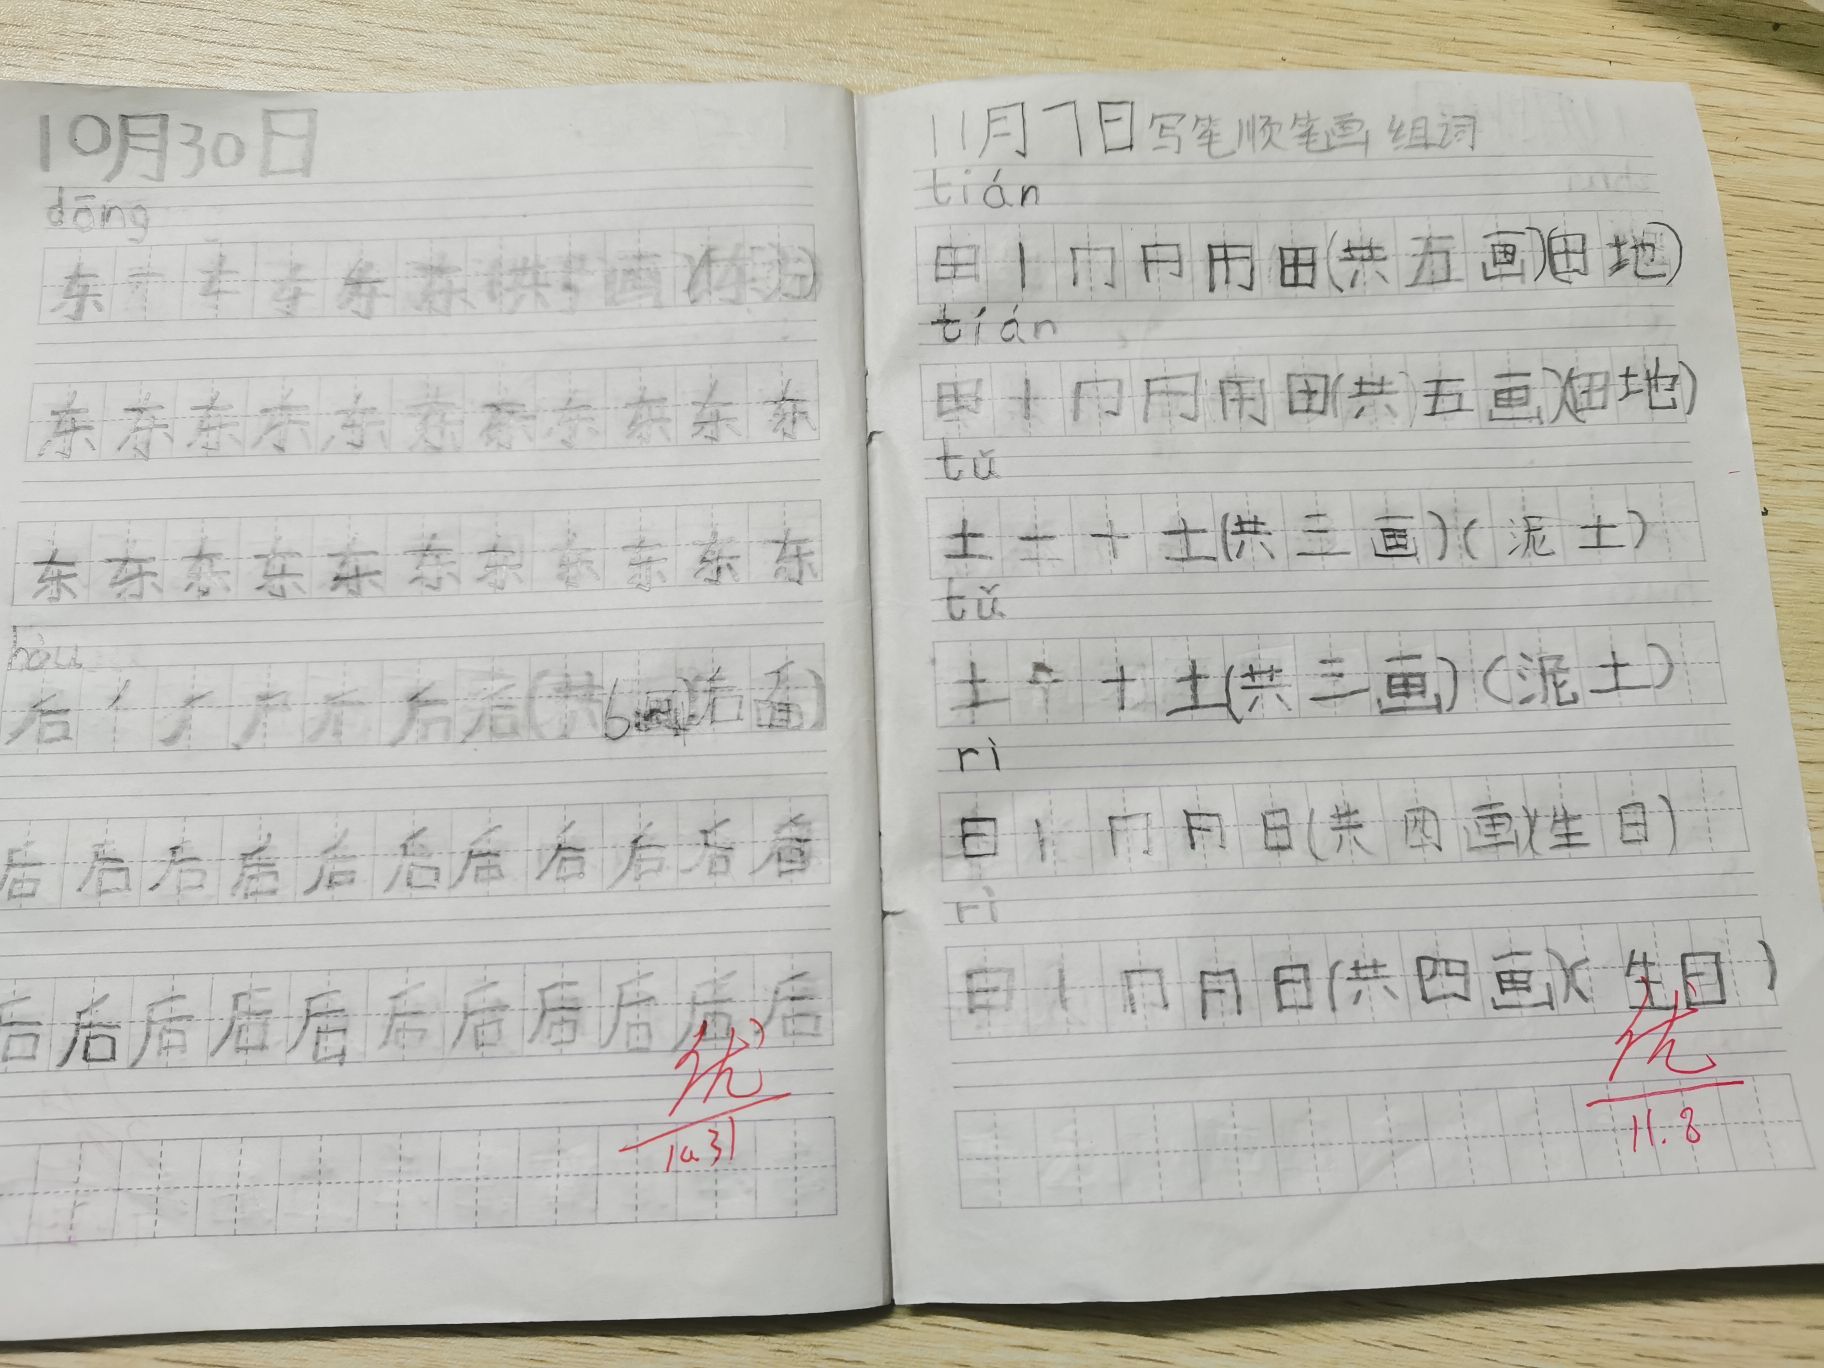 10月30日
dōng
东 东 东 共 画
东 东 东 东 东 东 东 东 东 东 东
东 东 东 东 东 东 东 东 东 东 东
hòu
后 后 后 (共 6画)(后面)
后 后 后 后 后 后 后 后 后 后 后
后 后 后 后 后 后 后 后 后 后 后
优
10.31
11月7日写笔顺笔画 组词
tián
田 丨 冂 田 (共 五 画)(田 地)
tián
田 丨 冂 田 (共 五 画)(田 地)
tǔ
土 一 十 土 (共 三 画)(泥 土)
tǔ
土 十 土 (共 三 画)(泥 土)
rì
日 丨 冂 日 (共 四 画)(生 日)
rì
日 丨 冂 日 (共 四 画)(生 日)
优
11.8